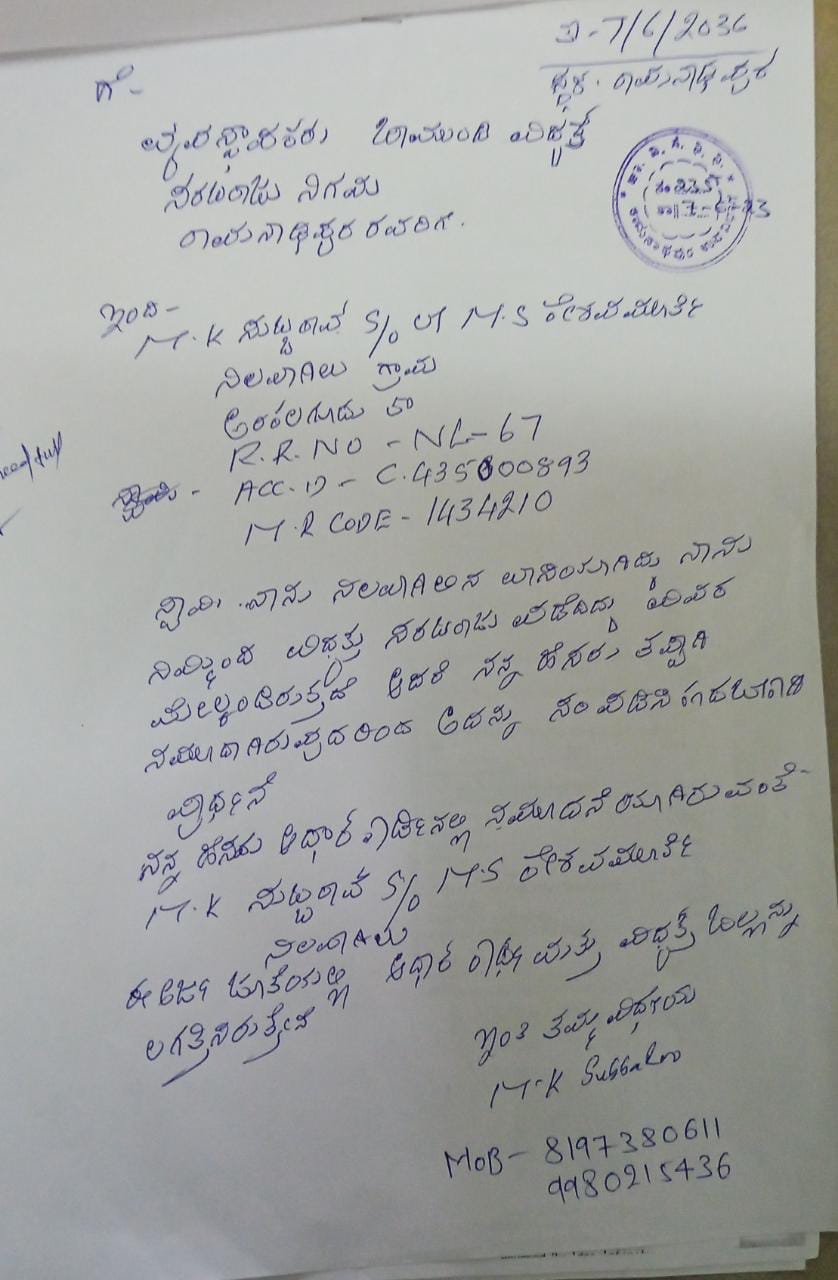 ದಿ-7/6/2036
ಸ್ಥಳ. ರಾಮನಾಥಪುರ
ಗೆ-
ವ್ಯವಸ್ಥಾಪಕರು ಚಾಮುಂಡಿ ವಿದ್ಯುತ್
ಸರಬರಾಜು ನಿಗಮ
ರಾಮನಾಥಪುರ ರವರಿಗೆ.
ಇಂದ-
M.K ಸುಬ್ಬರಾವ್ S/o ಲೇ M.S ಕೇಶವಮೂರ್ತಿ
ನಿಲವಾಗಿಲು ಗ್ರಾಮ
ಅರಕಲಗೂಡು ತಾ
R.R.NO - NL-67
ACC.ID - C.435600893
M.R CODE - 1434210
ಸ್ವಾಮಿ. ನಾನು ನಿಲವಾಗಿಲಿನ ವಾಸಿಯಾಗಿದ್ದು ನಾನು
ನಿಮ್ಮಿಂದ ವಿದ್ಯುತ್ ಸರಬರಾಜು ಪಡೆದಿದ್ದು ವಿವರ
ಮೇಲ್ಕಂಡಿರುತ್ತದೆ ಆದರೆ ನನ್ನ ಹೆಸರು ತಪ್ಪಾಗಿ
ನಮೂದಾಗಿರುವುದರಿಂದ ಅದನ್ನು
ಪ್ರಾರ್ಥನೆ
ನನ್ನ ಹೆಸರು ಆಧಾರ್ ಕಾರ್ಡಿನಲ್ಲಿ ನಮೂದನೆಯಾಗಿರುವಂತೆ-
M.K ಸುಬ್ಬರಾವ್ S/o M.S ಕೇಶವಮೂರ್ತಿ
ನಿಲವಾಗಿಲು
ಈ ಅರ್ಜಿ ಜೊತೆಯಲ್ಲಿ ಆಧಾರ್ ಕಾರ್ಡ್ ಮತ್ತು ವಿದ್ಯುತ್ ಬಿಲ್ಲನ್ನು
ಲಗತ್ತಿಸಿರುತ್ತೇನೆ
ಇಂತಿ ತಮ್ಮ ವಿಧೇಯ
M.K Subbarao
MOB - 8197380611
9980215436